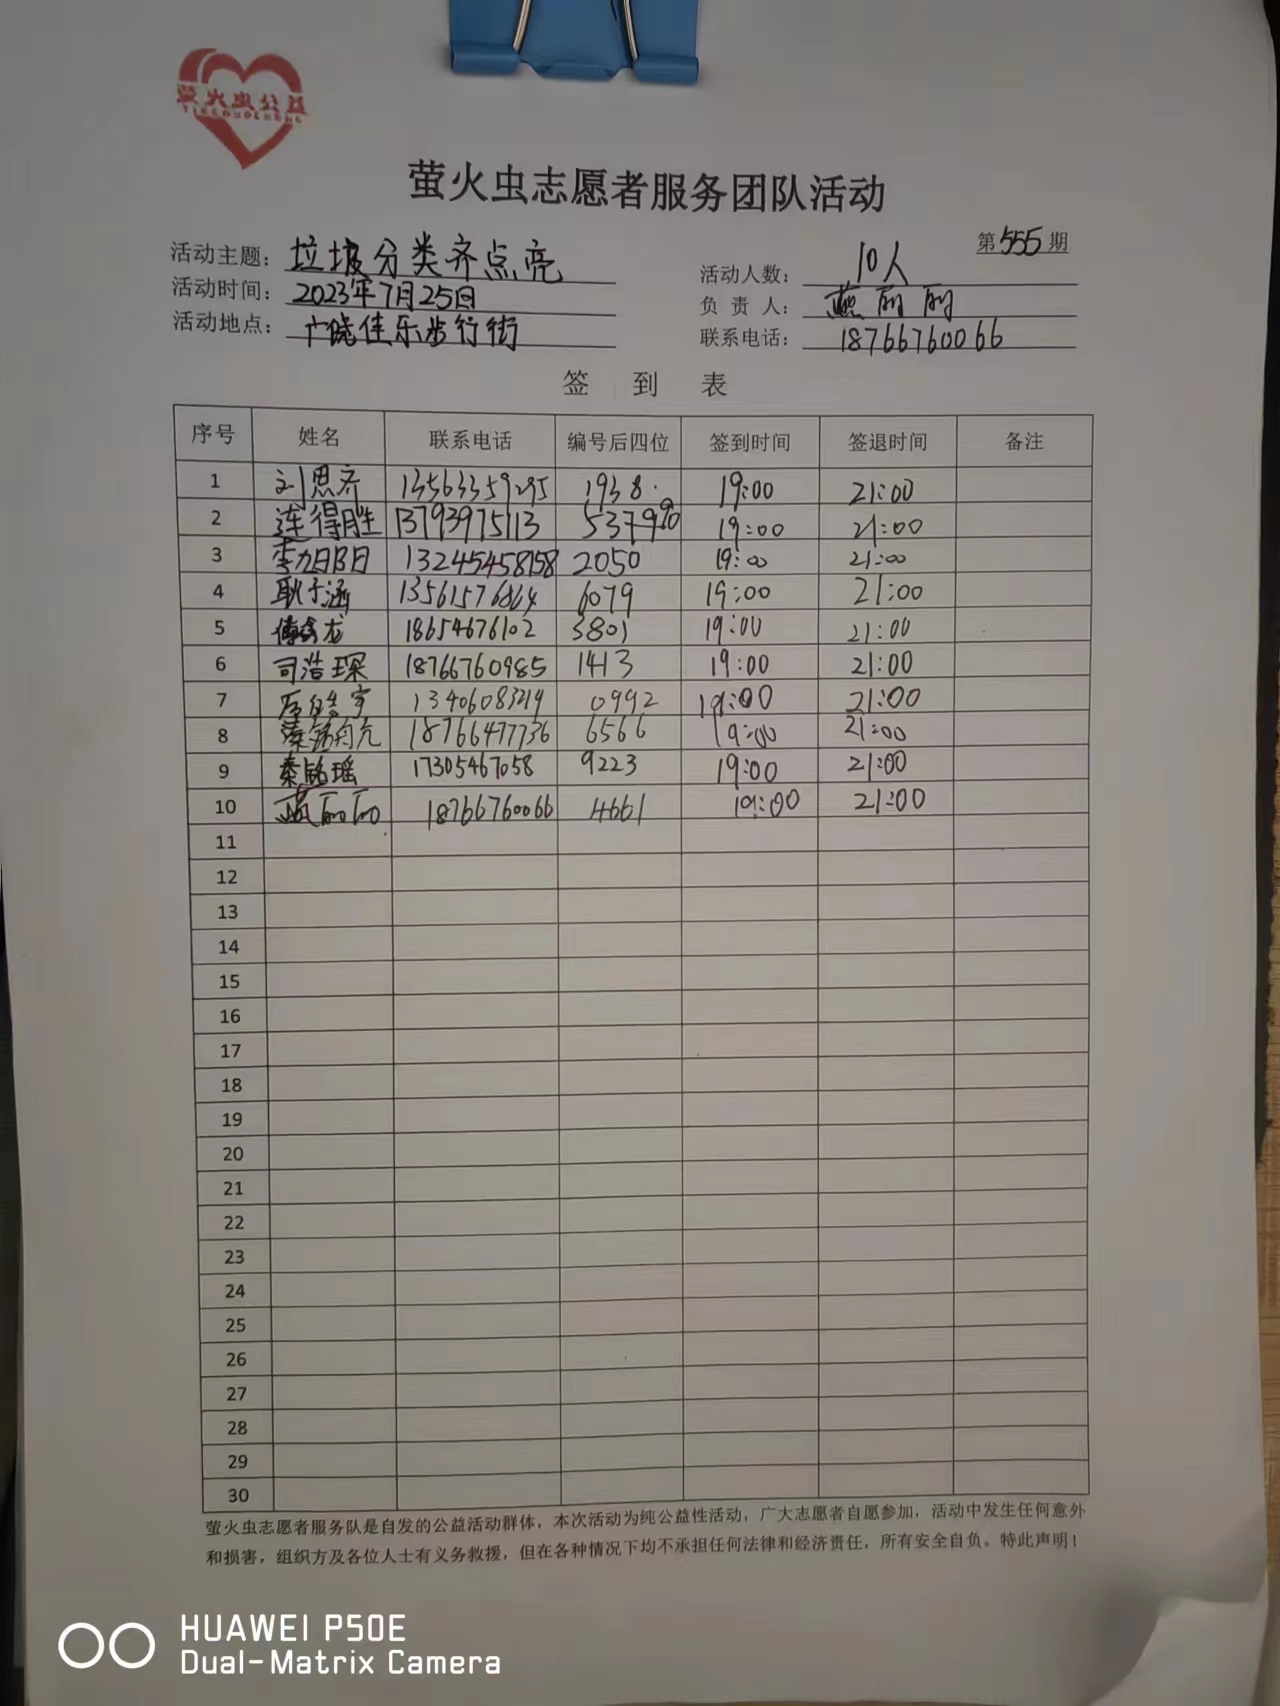 萤火虫公益
萤火虫志愿者服务团队活动
第555期
活动主题： 垃圾分类齐点亮 活动人数： 10人
活动时间： 2023年7月25日 负责人： 燕丽丽
活动地点： 广饶佳乐步行街 联系电话： 18766760066
签到表
序号 姓名 联系电话 编号后四位 签到时间 签退时间 备注
1 刘思齐 13563359295 1938 19:00 21:00
2 连得胜 13793975113 19:00 21:00
3 13245458158 2050 19:00 21:00
4 耿子涵 13561576864 6079 19:00 21:00
5 18654676102 3801 19:00 21:00
6 司浩琛 18766760985 1413 19:00 21:00
7 13406083219 0992 19:00 21:00
8 18766477736 6566 19:00 21:00
9 秦铭瑶 17305467058 9223 19:00 21:00
10 燕丽丽 18766760066 4661 19:00 21:00
11
12
13
14
15
16
17
18
19
20
21
22
23
24
25
26
27
28
29
30
萤火虫志愿者服务队是自发的公益活动群体，本次活动为纯公益性活动，广大志愿者自愿参加，活动中发生任何意外
和损害，组织方及各位人士有义务救援，但在各种情况下均不承担任何法律和经济责任，所有安全自负。特此声明！
HUAWEI P50E
Dual-Matrix Camera